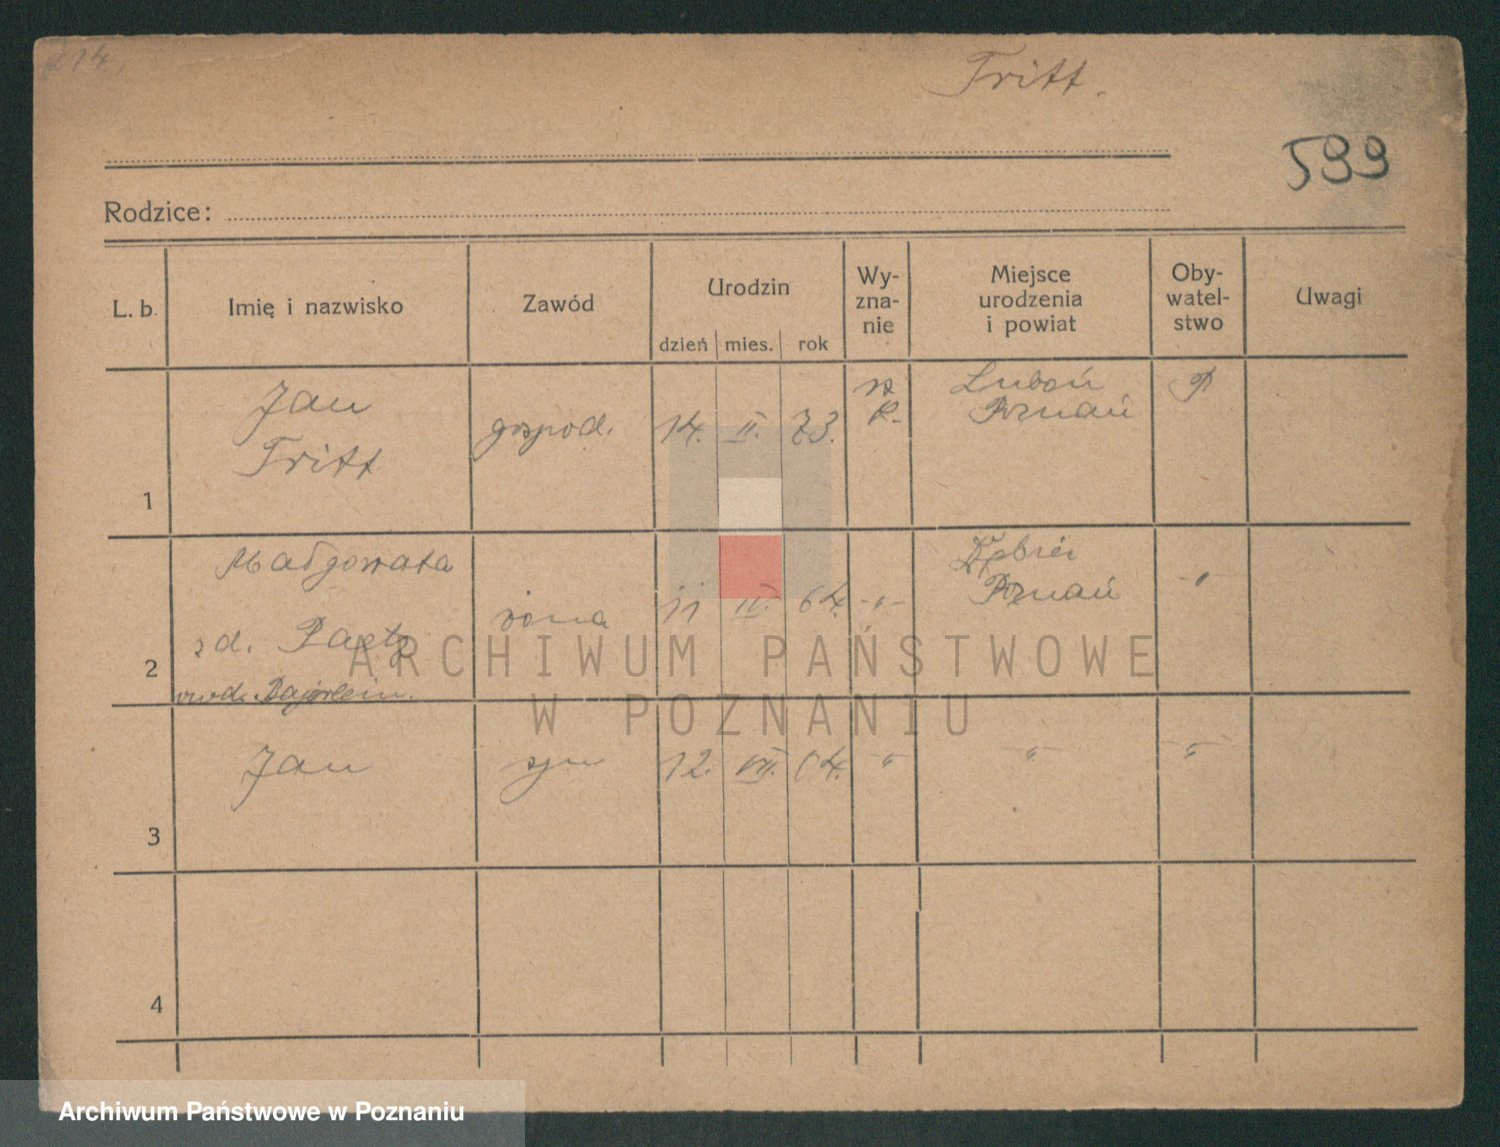 214.
Tritt.
599
Rodzice:
L. b.
Imię i nazwisko
Zawód
Urodzin
dzień mies. rok
Wy-
zna-
nie
Miejsce
urodzenia
i powiat
Oby-
watel-
stwo
Uwagi
1
Jan
Tritt
gospod.
14. II. 73.
rz
k.
Luboń
Poznań
P
2
Małgorzata
zd. Paetz
owd. Bajerlein.
żona
11 IV. 64.
-"-
Dębiec
Poznań
-"
3
Jan
syn
12. VII. 04.
-"-
-"-
-"-
4
ARCHIWUM PAŃSTWOWE
W POZNANIU
Archiwum Państwowe w Poznaniu